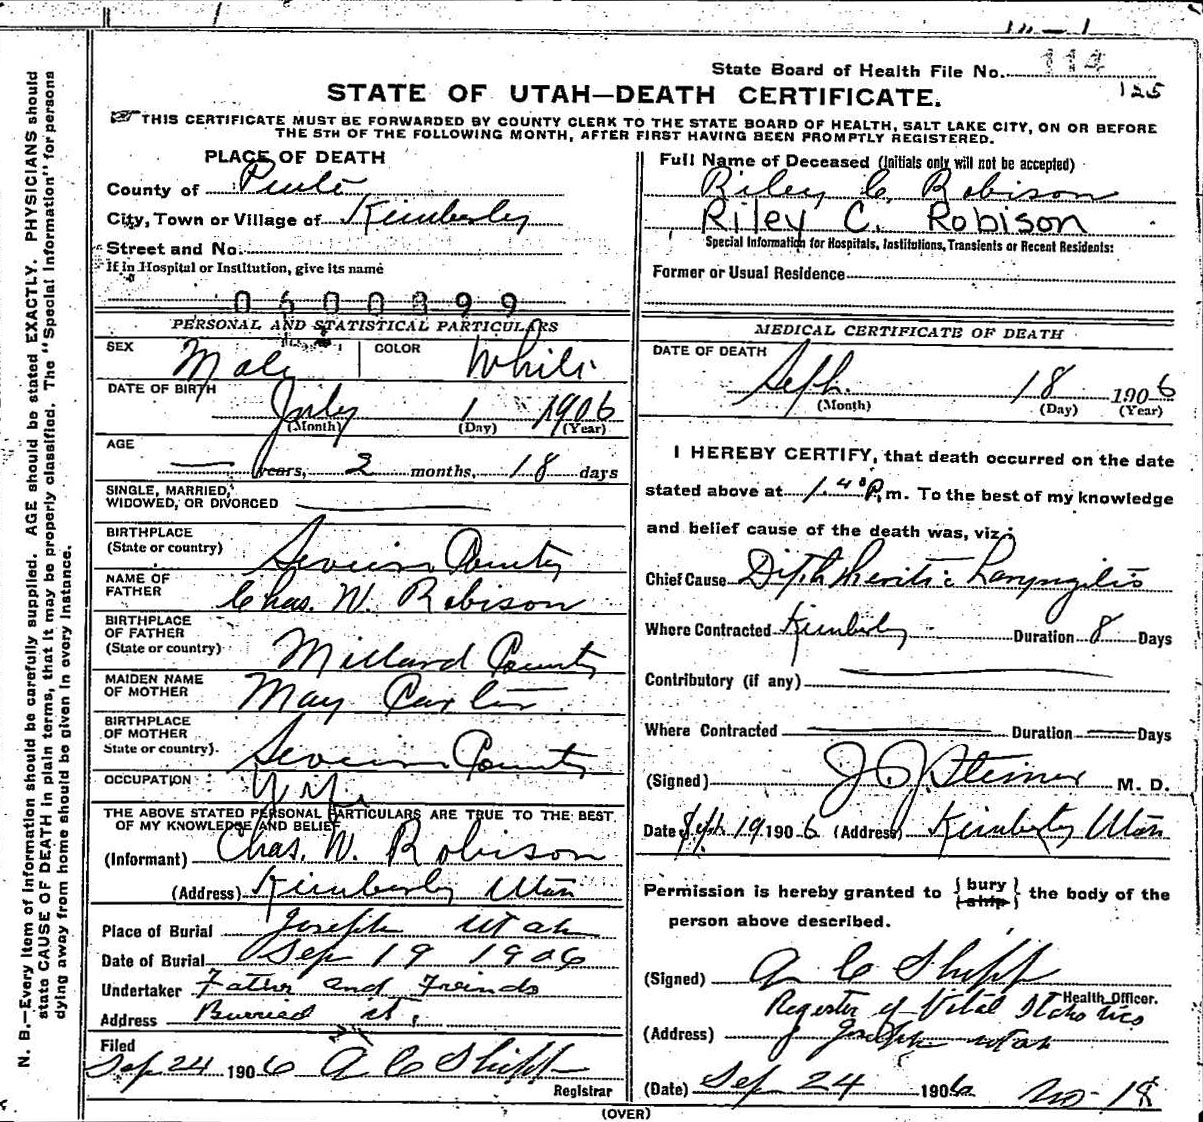 State Board of Health File No. 114
125
STATE OF UTAH—DEATH CERTIFICATE.
THIS CERTIFICATE MUST BE FORWARDED BY COUNTY CLERK TO THE STATE BOARD OF HEALTH, SALT LAKE CITY, ON OR BEFORE
THE 5TH OF THE FOLLOWING MONTH, AFTER FIRST HAVING BEEN PROMPTLY REGISTERED.
PLACE OF DEATH
County of Piute
City, Town or Village of Kimberly
Street and No.
If in Hospital or Institution, give its name
0600399
PERSONAL AND STATISTICAL PARTICULARS
SEX Male COLOR White
DATE OF BIRTH
July 1 1906
(Month) (Day) (Year)
AGE
— years, 2 months, 18 days
SINGLE, MARRIED,
WIDOWED, OR DIVORCED —
BIRTHPLACE
(State or country) Sevier County
NAME OF
FATHER Chas. W. Robison
BIRTHPLACE
OF FATHER
(State or country) Millard County
MAIDEN NAME
OF MOTHER May
BIRTHPLACE
OF MOTHER
State or country). Sevier County
OCCUPATION
THE ABOVE STATED PERSONAL PARTICULARS ARE TRUE TO THE BEST
OF MY KNOWLEDGE AND BELIEF
(Informant) Chas. W. Robison
(Address) Kimberly Utah
Place of Burial Joseph Utah
Date of Burial Sep 19 1906
Undertaker Father and Freinds
Address Burried it.
Filed
Sep 24 1906 A C Shipp
Registrar
Full Name of Deceased (Initials only will not be accepted)
Riley C. Robison
Riley C. Robison
Special Information for Hospitals, Institutions, Transients or Recent Residents:
Former or Usual Residence
MEDICAL CERTIFICATE OF DEATH
DATE OF DEATH
Sept. 18 1906
(Month) (Day) (Year)
I HEREBY CERTIFY, that death occurred on the date
stated above at 1.40 P.m. To the best of my knowledge
and belief cause of the death was, viz:
Chief Cause Diphtheritic Laryngitis
Where Contracted Kimberly Duration 8 Days
Contributory (if any) —
Where Contracted — Duration — Days
(Signed) J J Steiner M. D.
Date Sept. 19 1906 (Address) Kimberly Utah
Permission is hereby granted to {bury
{ship} the body of the
person above described.
(Signed) A C Shipp
Health Officer.
Regester of Vital Statistics
(Address) Joseph Utah
(Date) Sep 24 1906 No- 18
(OVER)
N. B.—Every item of information should be carefully supplied. AGE should be stated EXACTLY. PHYSICIANS should
state CAUSE OF DEATH in plain terms, that it may be properly classified. The "Special Information" for persons
dying away from home should be given in every instance.